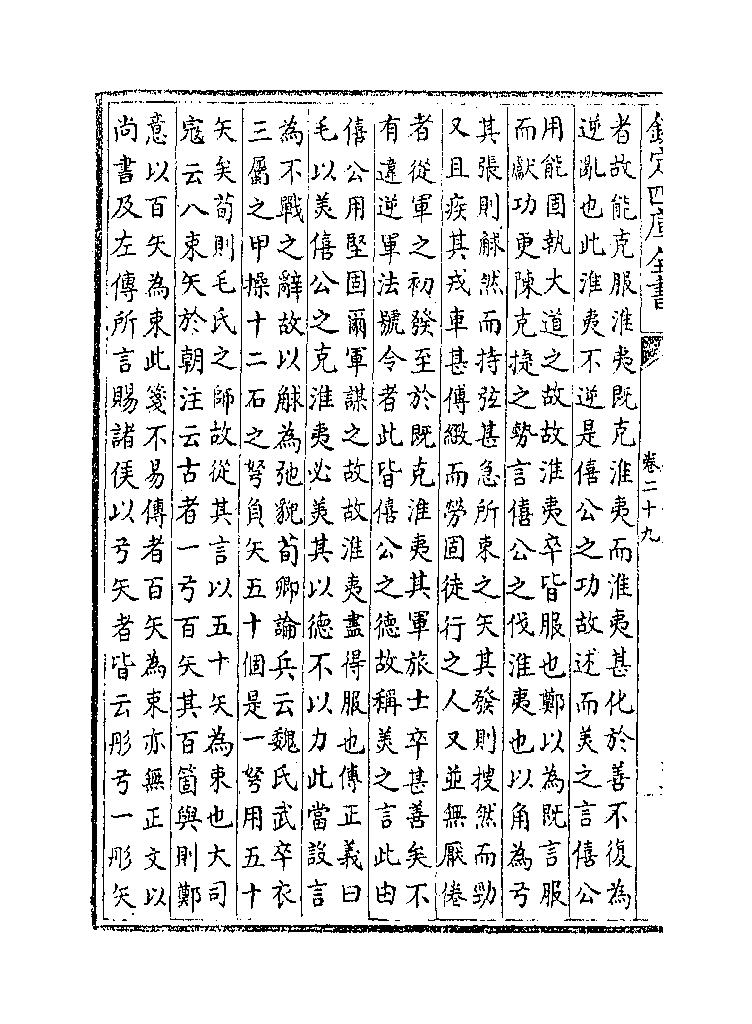 欽定四庫全書
卷二十九
者故能克服淮夷既克淮夷而淮夷甚化於善不復為
逆亂也此淮夷不逆是僖公之功故述而美之言僖公
用能固執大道之故故淮夷卒皆服也鄭以為既言服
而獻功更陳克捷之勢言僖公之伐淮夷也以角為弓
其張則觩然而持弦甚急所束之矢其發則搜然而勁
又且疾其戎車甚傅緻而勞固徒行之人又並無厭倦
者從軍之初發至於既克淮夷其軍旅士卒甚善矣不
有違逆軍法號令者此皆僖公之德故稱美之言此由
僖公用堅固爾軍謀之故故淮夷盡得服也傳正義曰
毛以美僖公之克淮夷必美其以德不以力此當設言
為不戰之辭故以觩為弛貌荀卿論兵云魏氏武卒衣
三屬之甲操十二石之弩負矢五十個是一弩用五十
矢矣荀則毛氏之師故從其言以五十矢為束也大司
寇云入束矢於朝注云古者一弓百矢其百箇與則鄭
意以百矢為束此箋不易傳者百矢為束亦無正文以
尚書及左傳所言賜諸侯以弓矢者皆云彤弓一彤矢